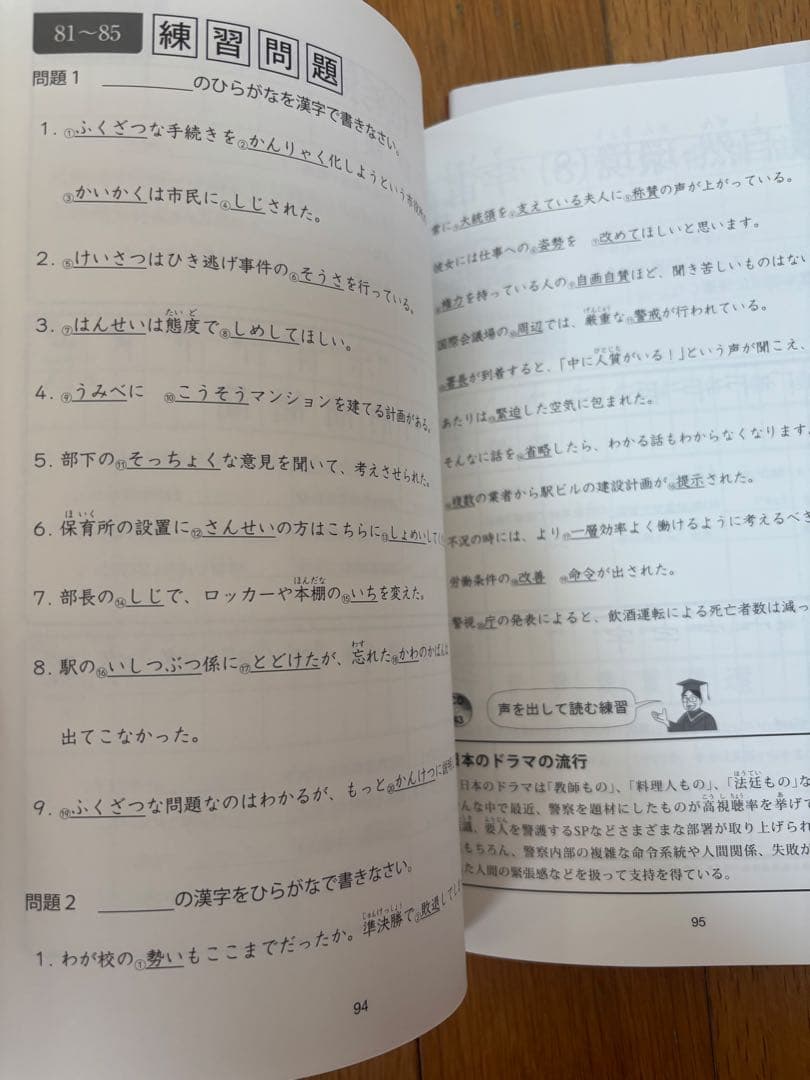 81〜85 練習問題
問題1 ＿＿＿のひらがなを漢字で書きなさい。
1. ①ふくざつな手続きを②かんりゃく化しようという
③かいかくは市民に④しじされた。
2. ⑤けいさつはひき逃げ事件の⑥そうさを行っている。
3. ⑦はんせいは態度で⑧しめしてほしい。
たいど
4. ⑨うみべに ⑩こうそうマンションを建てる計画がある。
5. 部下の⑪そっちょくな意見を聞いて、考えさせられた。
6. 保育所の設置に⑫さんせいの方はこちらに⑬しょめいして
ほいく
7. 部長の⑭しじで、ロッカーや本棚の⑮いちを変えた。
ほんだな
8. 駅の⑯いしつぶつ係に⑰とどけたが、忘れた⑱かわのかばんは
わす
出てこなかった。
9. ⑲ふくざつな問題なのはわかるが、もっと⑳かんけつに
問題2 ＿＿＿の漢字をひらがなで書きなさい。
1. わが校の①勢いもここまでだったか。準決勝で②敗退して
じゅんけっしょう
94
常に④大統領を⑤支えている夫人に⑥称賛の声が上がっている。
彼女には仕事への姿勢を ⑦改めてほしいと思います。
権力を持っている人の自画自賛ほど、聞き苦しいものはない
国際会議場の周辺では、厳重な警戒が行われている。
げんじゅう
署長が到着すると、「中に人質がいる！」という声が聞こえ、
ひとじち
あたりは緊迫した空気に包まれた。
そんなに話を省略したら、わかる話もわからなくなります。
複数の業者から駅ビルの建設計画が提示された。
不況の時には、より一層効率よく働けるように考えるべき
労働条件の改善 命令が出された。
警視庁の発表によると、飲酒運転による死亡者数は減っ
声を出して読む練習
日本のドラマの流行
日本のドラマは「教師もの」、「料理人もの」、「法廷もの」な
ほうてい
んな中で最近、警察を題材にしたものが高視聴率を挙げて
こうしちょう あ
要人を警護するSPなどさまざまな部署が取り上げられ
ようじん
もちろん、警察内部の複雑な命令系統や人間関係、失敗が
た人間の緊張感などを扱って支持を得ている。
95